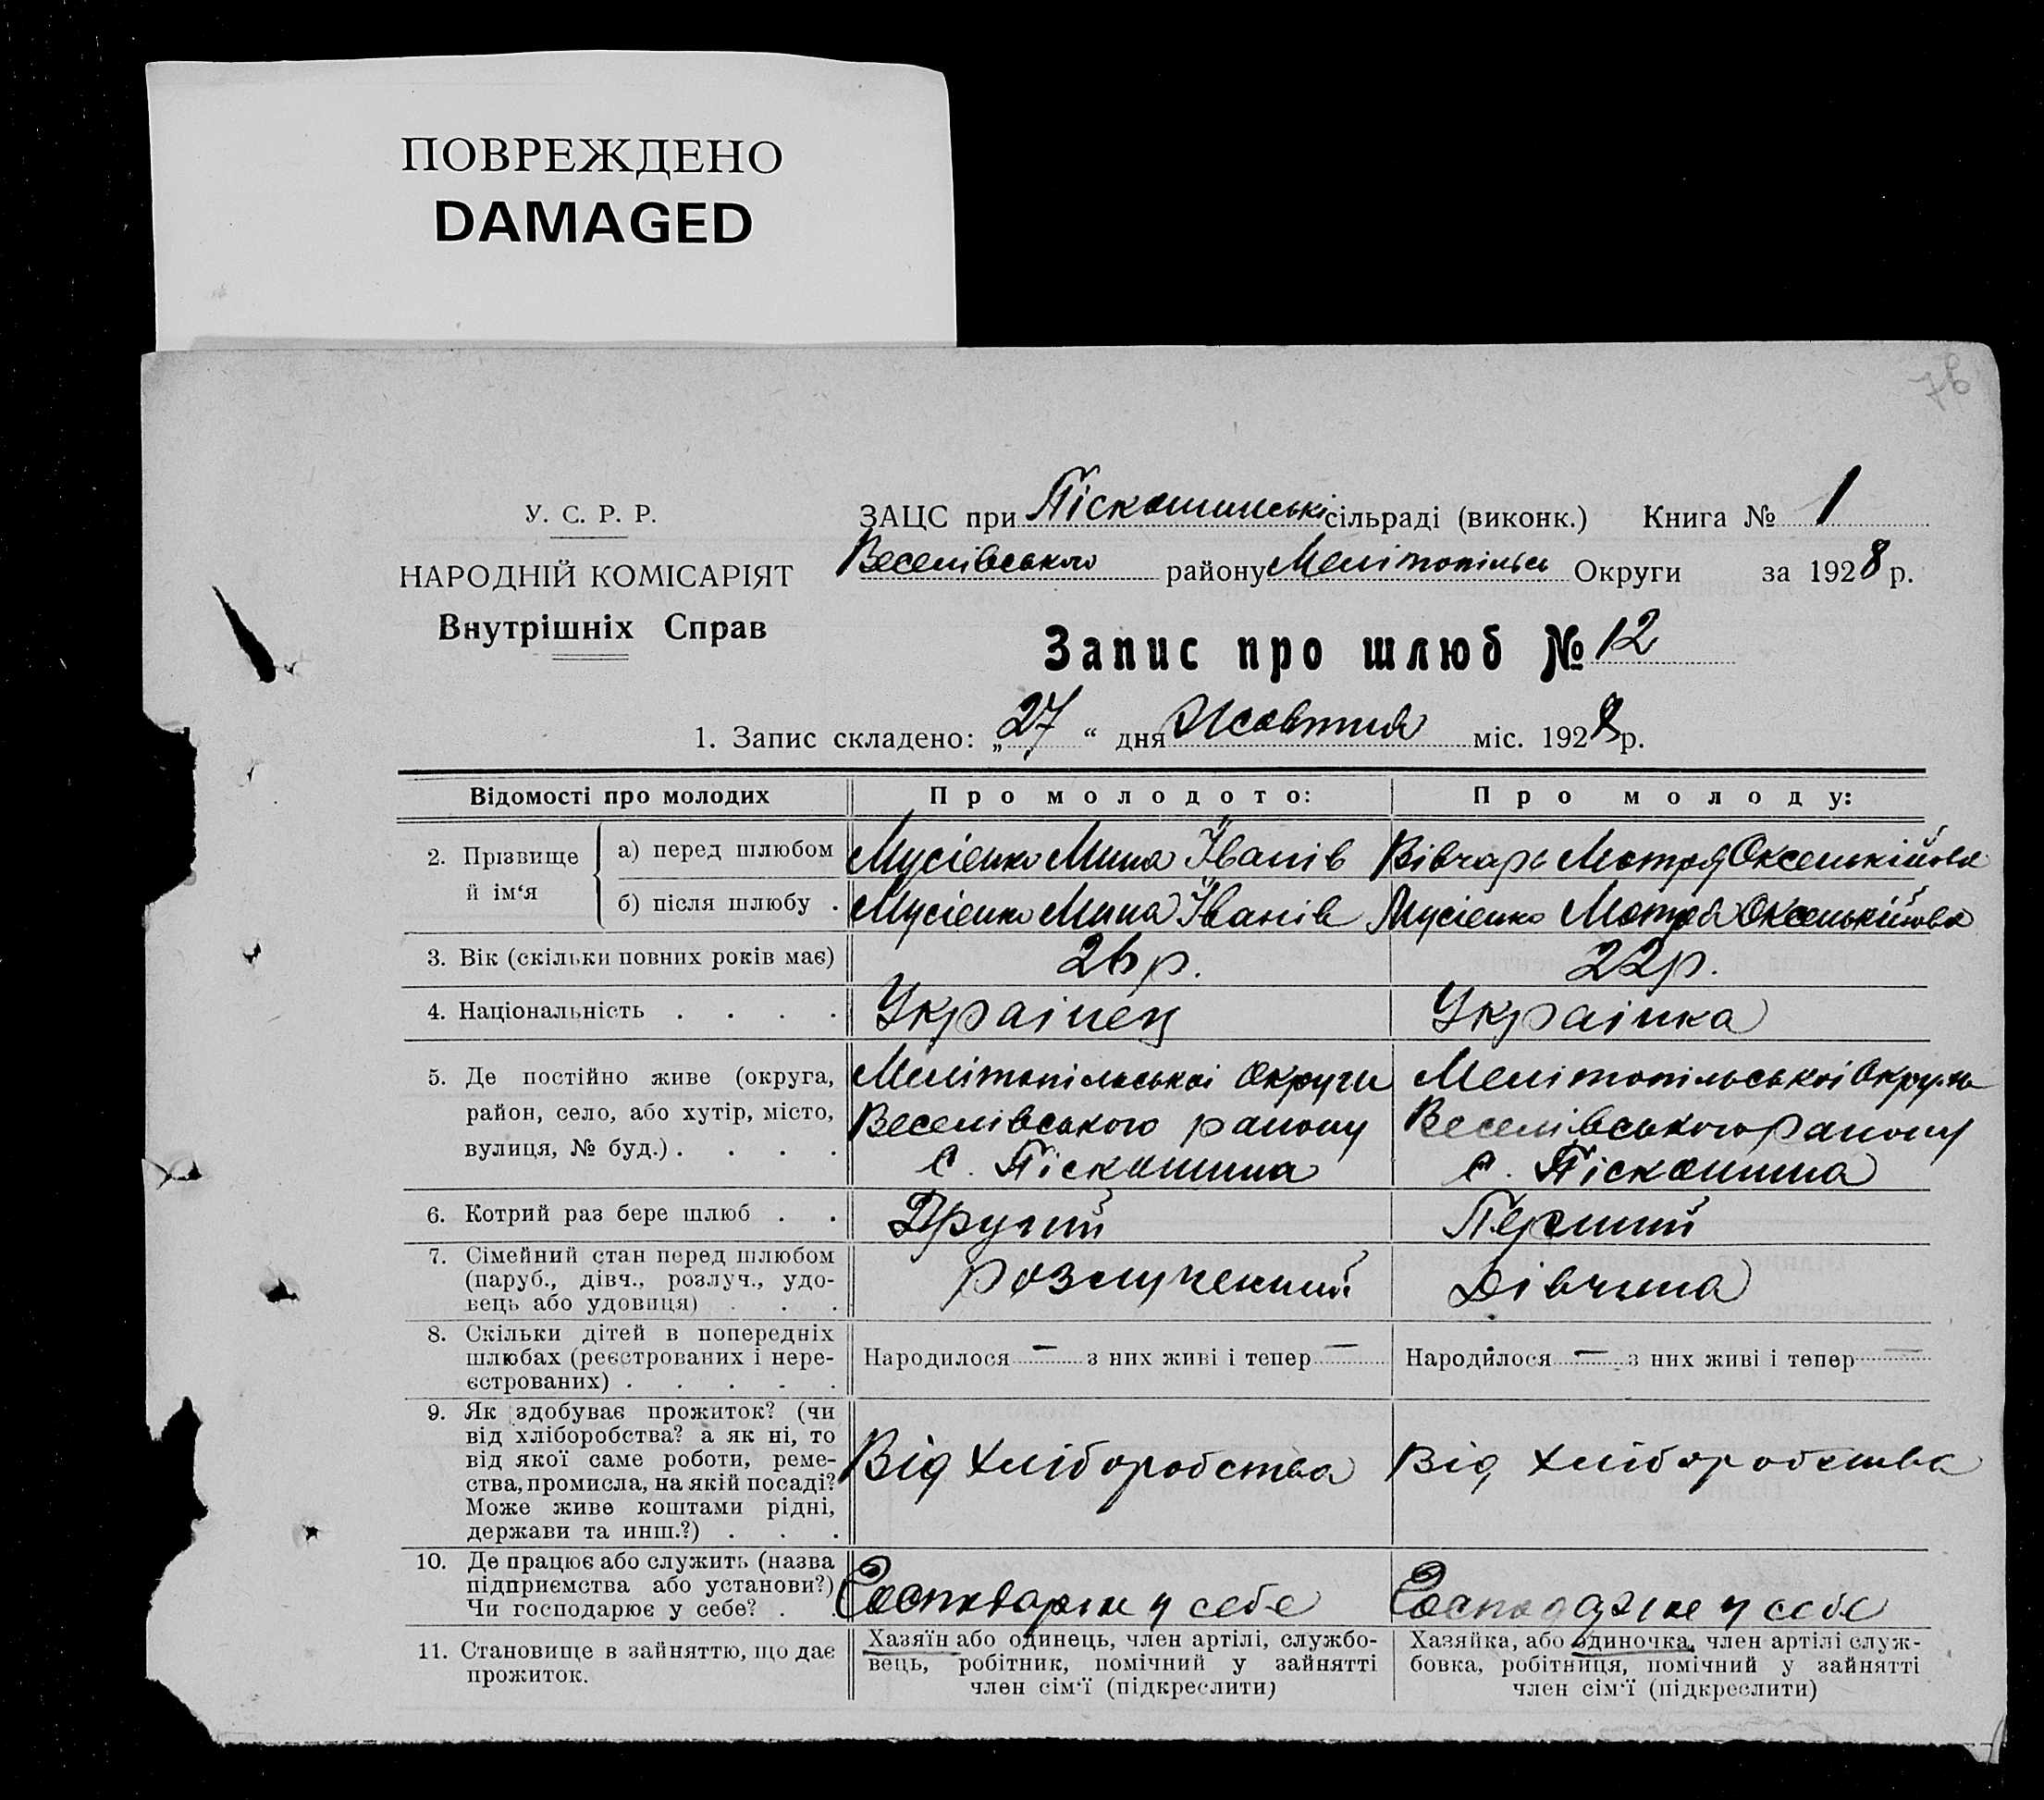 ПОВРЕЖДЕНО
DAMAGED
76
У. С. Р. Р.
НАРОДНІЙ КОМІСАРІЯТ
Внутрішніх Справ
ЗАЦС при Піскошинські сільраді (виконк.) Книга № 1
Веселівського району Мелітопільсь Округи за 1928 р.
Запис про шлюб № 12
1. Запис складено: „27“ дня Жовтня міс. 1928 р.
Відомості про молодих Про молодого: Про молоду:
2. Прізвище й ім‘я
а) перед шлюбом Мусієнко Мина Іванів Вівчарь Мотря Оксентійова
б) після шлюбу . Мусієнко Мина Іванів Мусієнко Мотря Оксентійова
3. Вік (скільки повних років має) 26 р. 22 р.
4. Національність . . . . Украінец Украінка
5. Де постійно живе (округа, Мелітопільськоі Округи Мелітопільськоі Округи
район, село, або хутір, місто, Веселівського району Веселівського району
вулиця, № буд.) . . . . с. Піскошина с. Піскошина
6. Котрий раз бере шлюб . . Другий Перший
7. Сімейний стан перед шлюбом
(паруб., дівч., розлуч., удо- розлучений Дівчина
вець або удовиця) . . .
8. Скільки дітей в попередніх
шлюбах (реєстрованих і нере- Народилося — з них живі і тепер — Народилося — з них живі і тепер —
єстрованих) . . . . .
9. Як здобуває прожиток? (чи
від хліборобства? а як ні, то
від якої саме роботи, реме- Від хліборобства Від хліборобства
ства, промисла, на якій посаді?
Може живе коштами рідні,
держави та инш.?) . . .
10. Де працює або служить (назва
підприємства або установи?)
Чи господарює у себе? . . Господарює у себе Господарює у себе
11. Становище в зайняттю, що дає Хазяїн або одинець, член артілі, службо- Хазяйка, або одиночка, член артілі служ-
прожиток. вець, робітник, помічний у зайнятті бовка, робітниця, помічний у зайнятті
член сім‘ї (підкреслити) член сім‘ї (підкреслити)